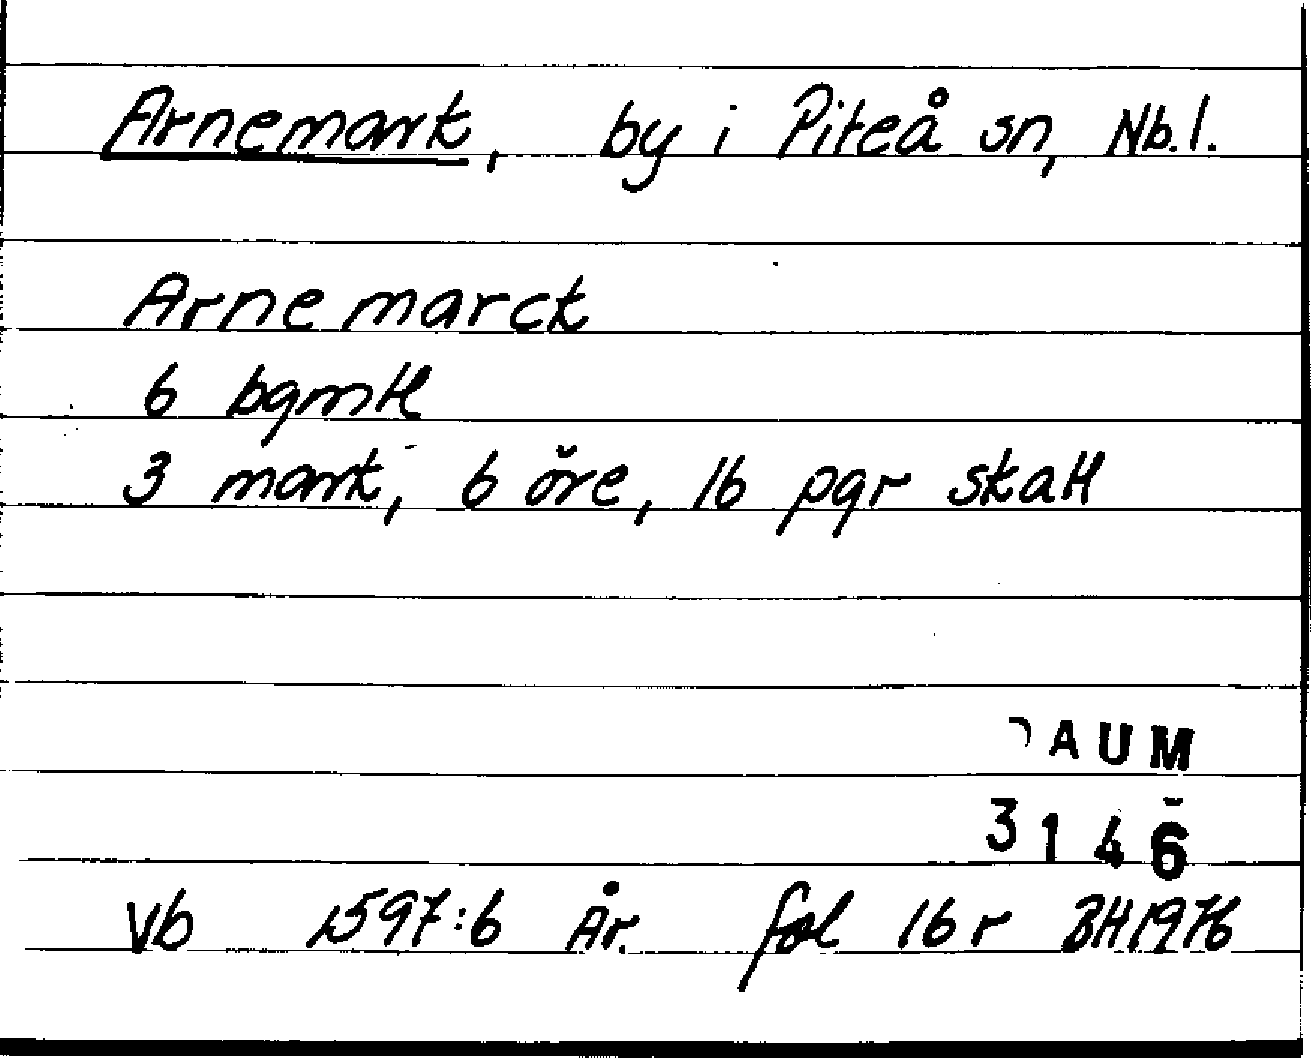 Arnemark, by i Piteå sn, Nb.l.
Arnemarck
6 bgmtl
3 mark, 6 öre, 16 pgr skatt
DAUM
3146
Vb 1597:6 År. fol 16 r BH1976